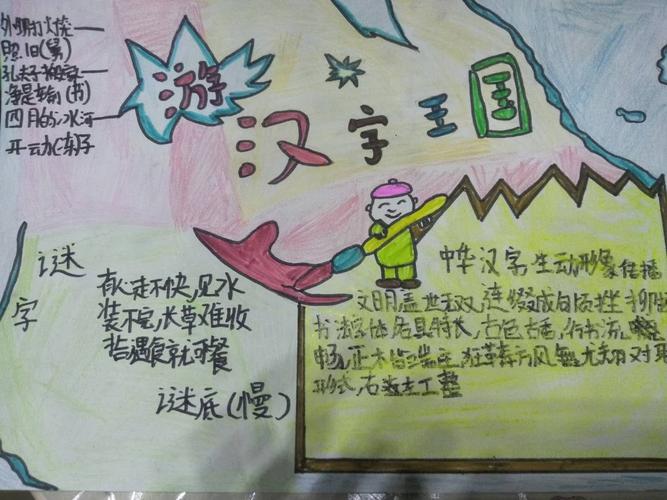 外甥打灯笼
照旧(舅)
孔夫子搬家
净是输(书)
四月的冰河
开动(冻)
游汉字王国
谜字
有人走不快,见水
装不完,水草难收
拾遇食就可餐
谜底(慢)
中华汉字,生动形象,传播
文明,盖世无双,连缀成句
书法字体,各具特长,古色古香,行书流
畅,正木皆端庄,狂草奔放风 对联
形式,右 左工整